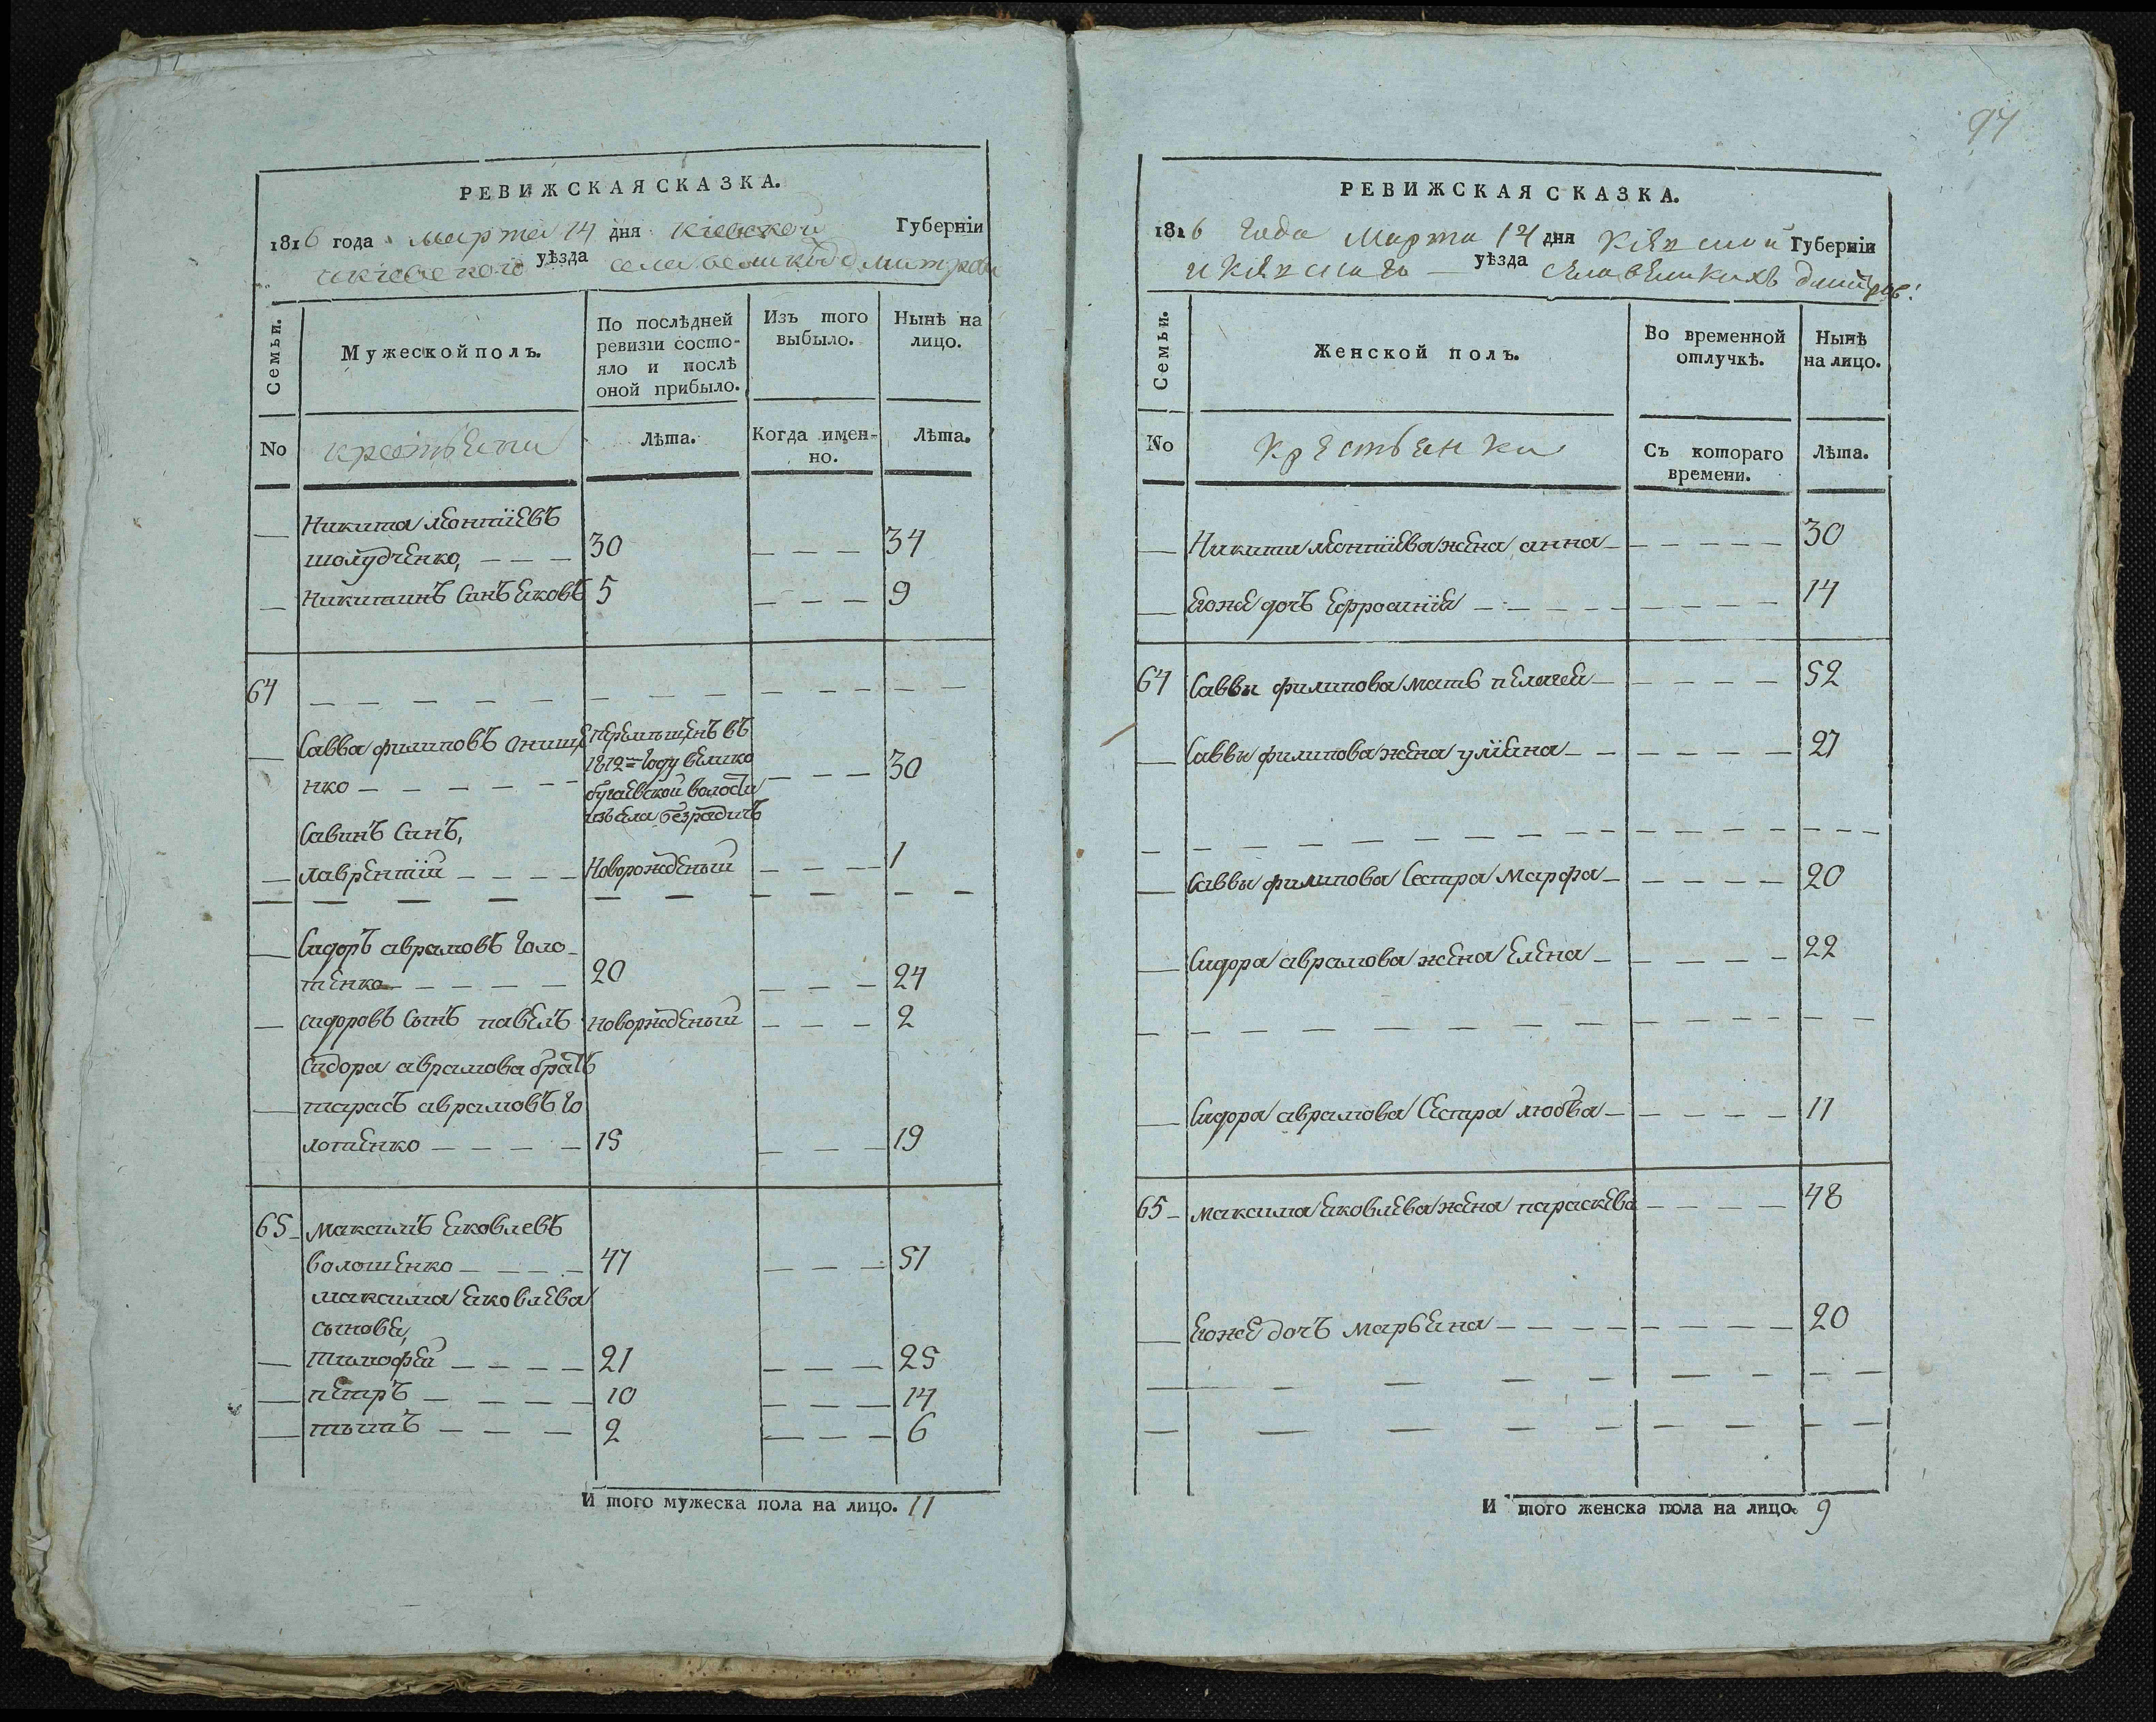 РЕВИЖСКАЯ СКАЗКА.
1816 года марта 14 дня Кіевской Губерніи
икіевского уѣзда села великод дмитрови
Семьи.
Мужеской полъ.
По послѣдней ревизіи состо-
яло и послѣ
оной прибыло.
Изъ того
выбыло.
Нынѣ на
лицо.
No
Лѣта.
Когда имен-
но.
Лѣта.
Никита леонтіевъ
шолудченко, 30 34
Никитинъ Синъ Яковъ 5 9
64
Савва филиповъ Онище
нко 30
перемѣщенъ въ
1812м году велико
бугаевской волости
изъ села безрадичъ
Савинъ Синъ,
лаврентій Новорожденый 1
Сидоръ аврамовъ Голо-
тенко 20 24
сидоровъ Сынъ павелъ новорожденый 2
Сидора аврамова братъ
тарасъ аврамовъ Го
лотенко 15 19
65 Максимъ Яковлевъ
волошенко 47 51
максима Яковлева
сыновя,
тимофей 21 25
петръ 10 14
титъ 2 6
И того мужеска пола на лицо. 11
97
РЕВИЖСКАЯ СКАЗКА.
1816 года Марта 14 дня Губерніи
уѣзда села великихъ дмитров:
Семьи.
Женской полъ.
Во временной
отлучкѣ.
Нынѣ
на лицо.
No
Крестьянки
Съ котораго
времени.
Лѣта.
Никити леонтіева жена анна 30
Егоже дочъ Ефросинія 14
64 Саввы филипова мать пелагея 52
Саввы филипова жена уліяна 27
Саввы филипова Сестра Марфа 20
Сидора аврамова жена Елена 22
Сидора аврамова Сестра любва 11
65 максима Яковлева жена параскева 48
Егоже дочъ марьяна 20
И того женска пола на лицо. 9